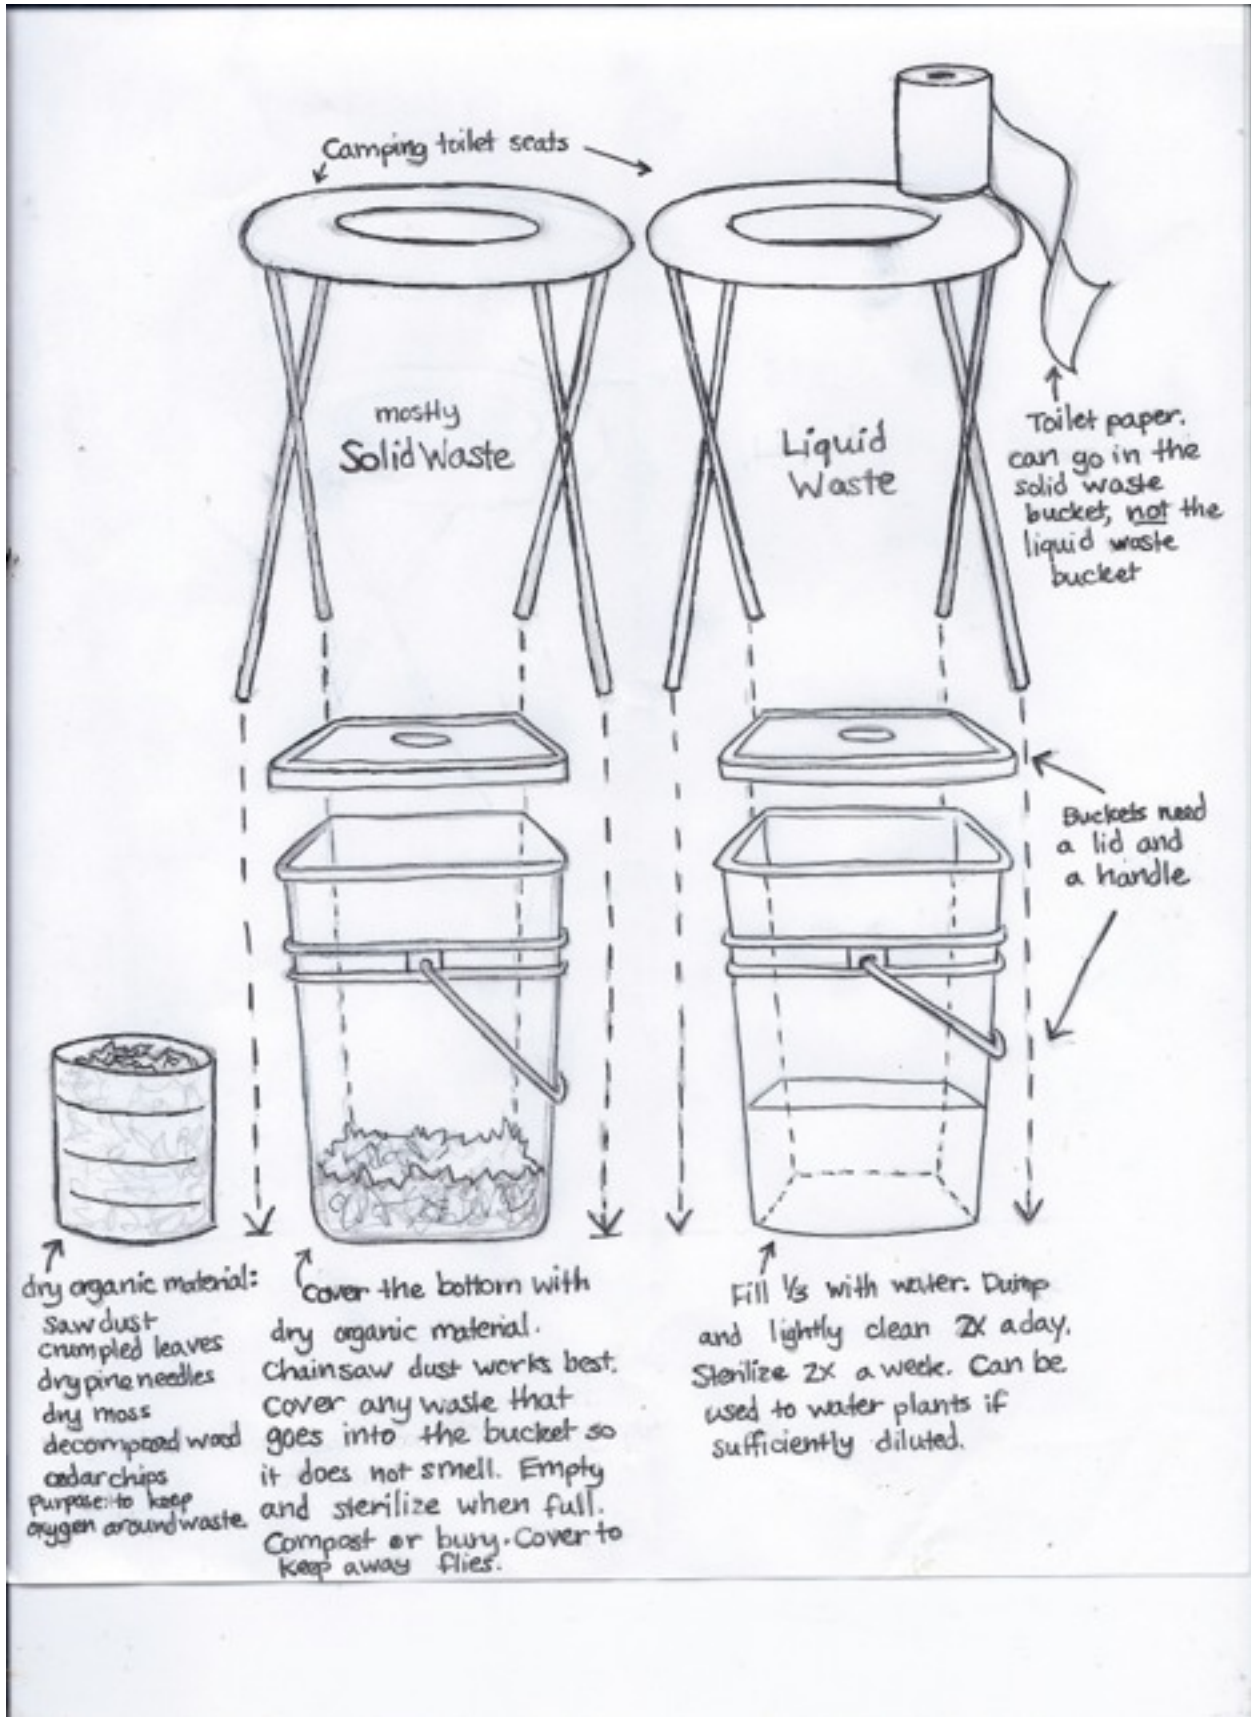 Camping toilet seats
mostly
Solid Waste
Liquid
Waste
Toilet paper.
can go in the
solid waste
bucket, not the
liquid waste
bucket
Buckets need
a lid and
a handle
dry organic material:
saw dust
crumpled leaves
dry pine needles
dry moss
decomposed wood
cedar chips
purpose: to keep
oxygen around waste.
Cover the bottom with
dry organic material.
Chainsaw dust works best.
Cover any waste that
goes into the bucket so
it does not smell. Empty
and sterilize when full.
Compost or bury. Cover to
keep away flies.
Fill 1/3 with water. Dump
and lightly clean 2X a day.
Sterilize 2X a week. Can be
used to water plants if
sufficiently diluted.